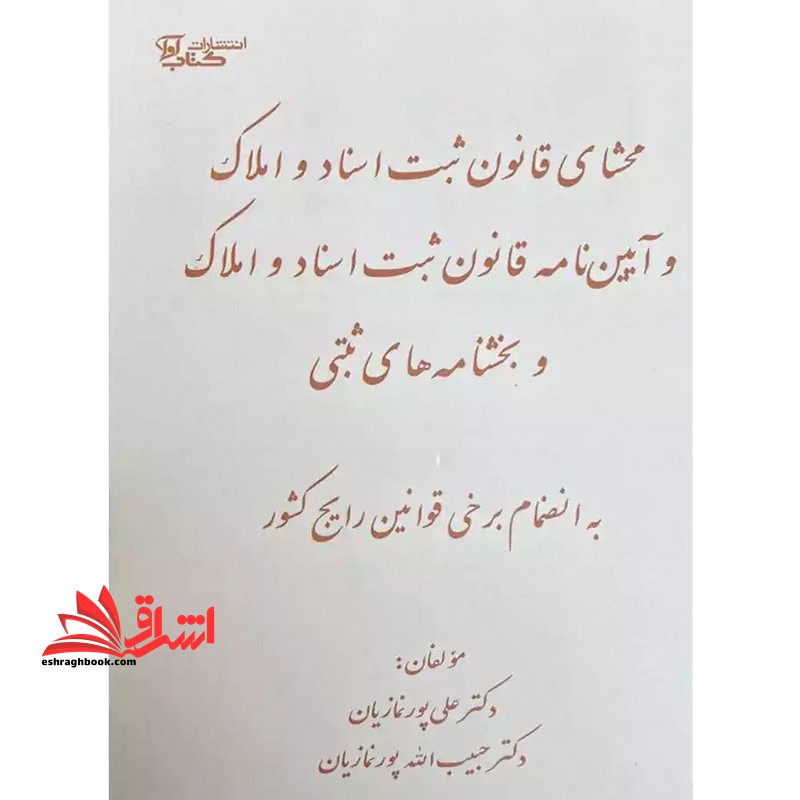 انتشارات
کتاب آوا
محشای قانون ثبت اسناد و املاک
و آیین‌نامه قانون ثبت اسناد و املاک
و بخشنامه های ثبتی
به انضمام برخی قوانین رایج کشور
مؤلفان:
دکتر علی پورنمازیان
دکتر حبیب الله پورنمازیان
اشراق
eshraghbook.com